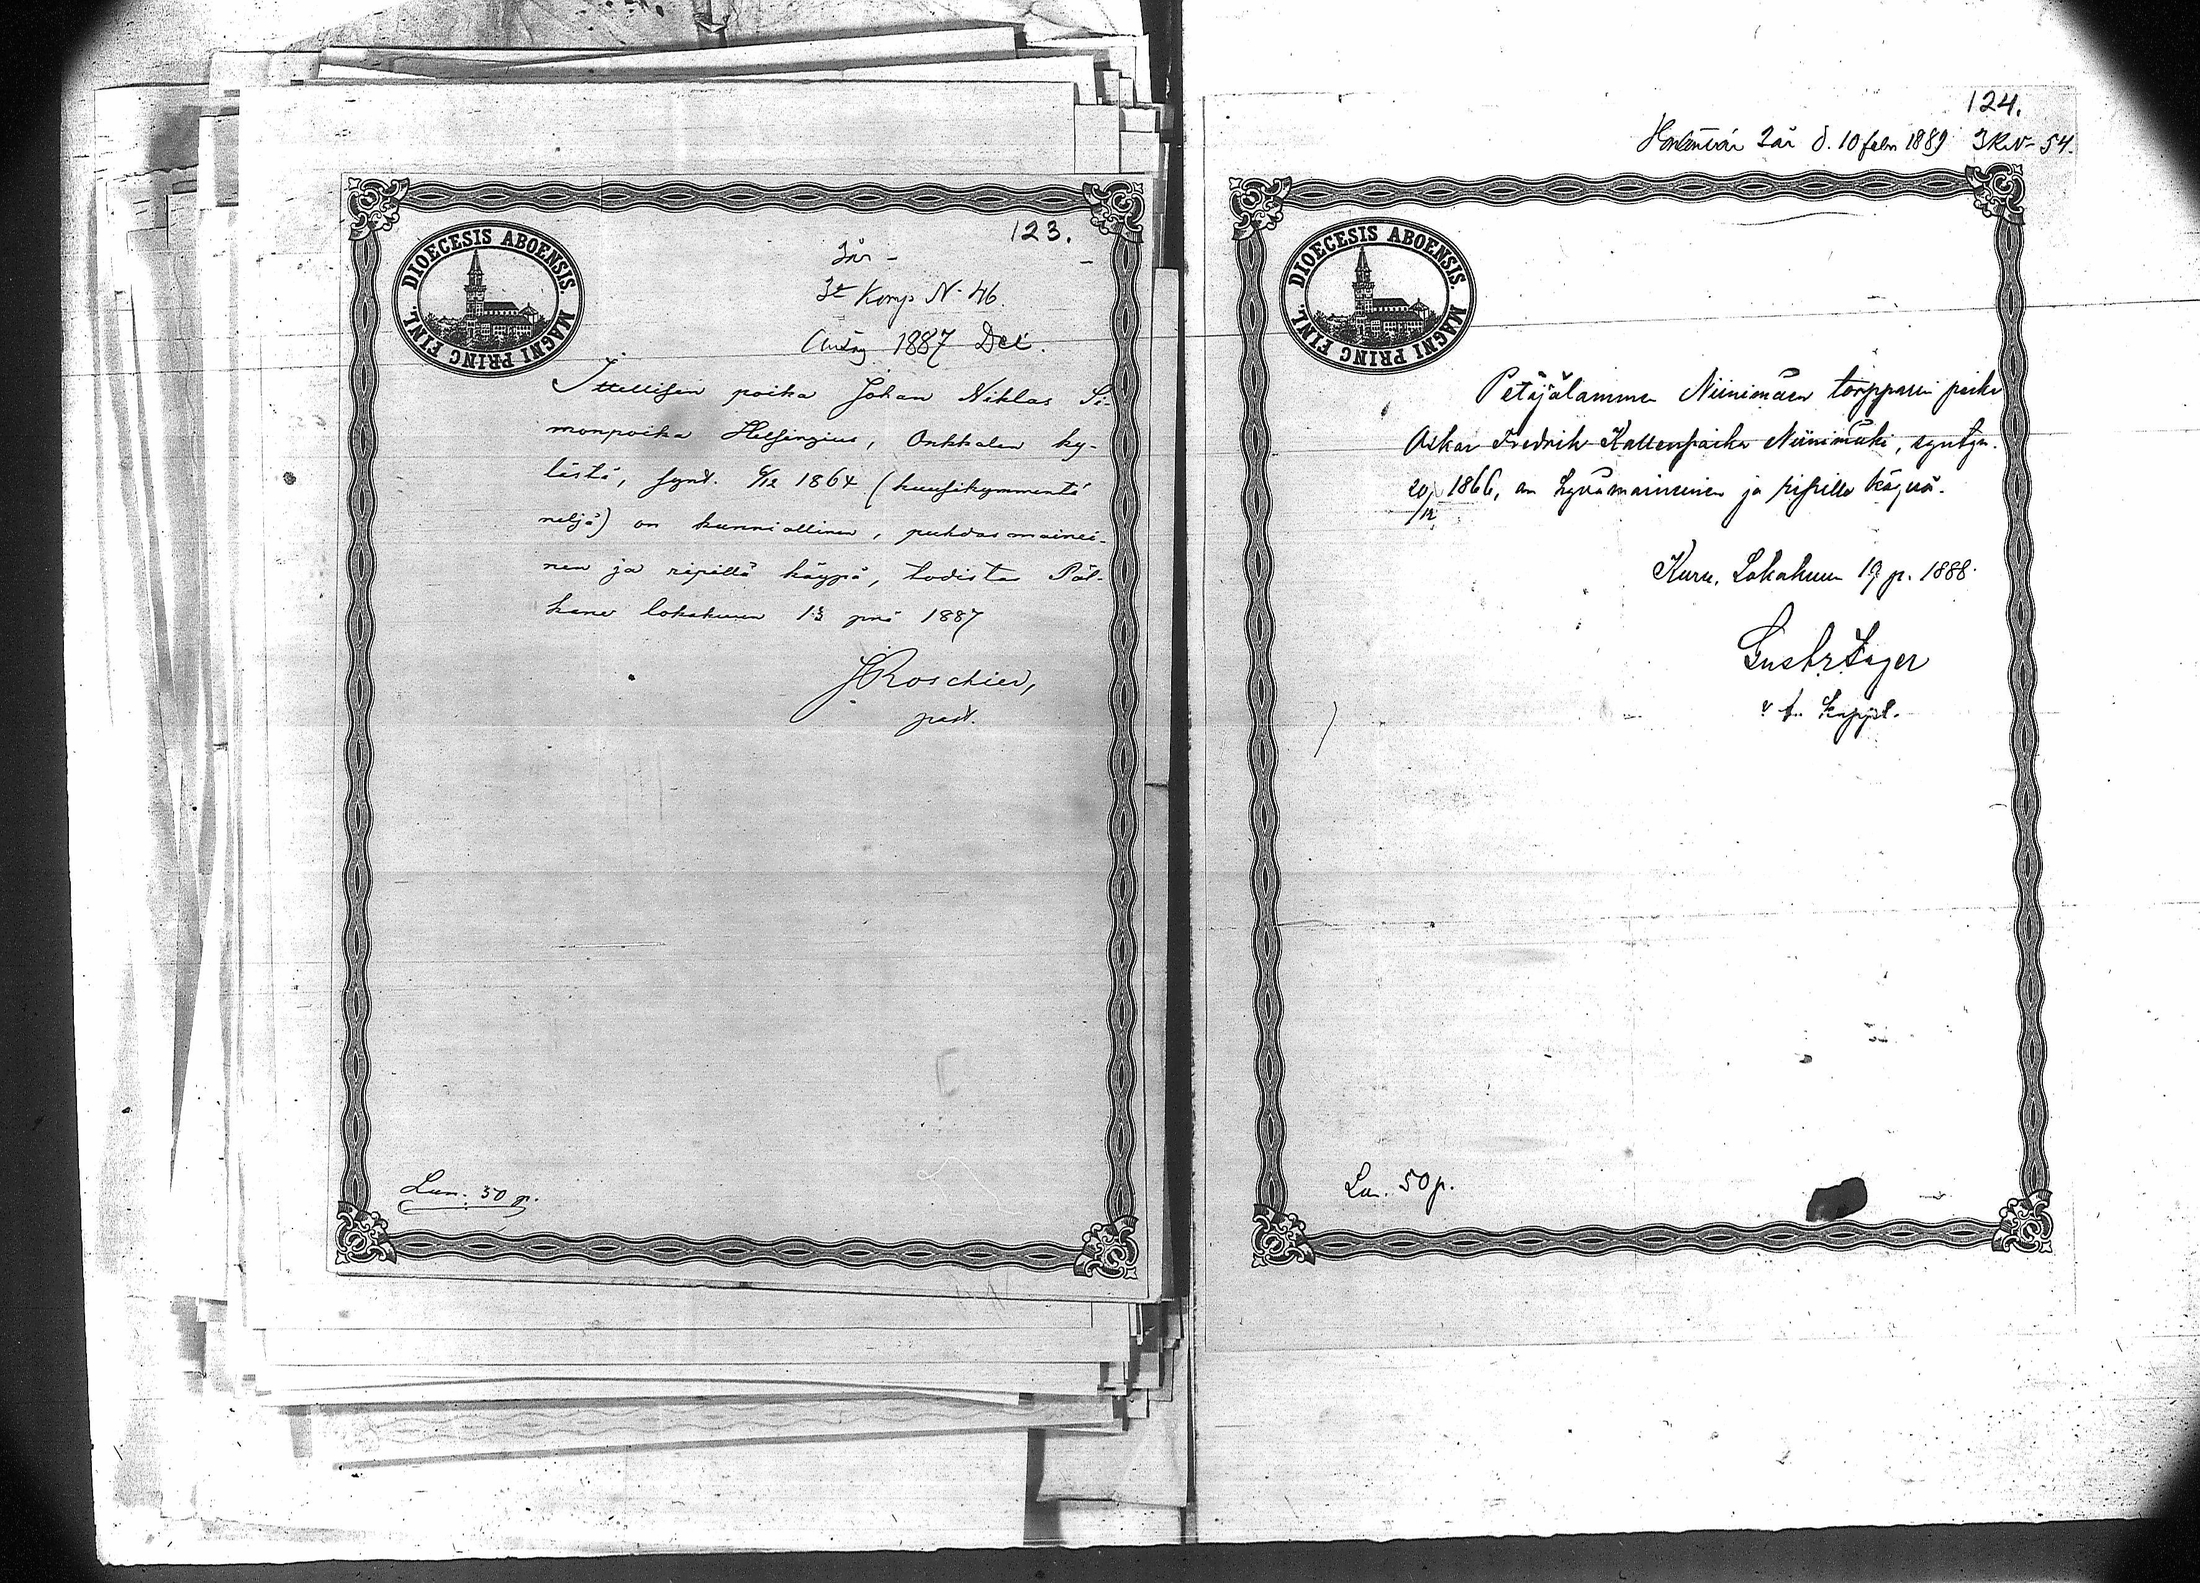 123.
DIOECESIS ABOENSIS. MAGNI PRINC FINL.
3år -
3e Komp N- 46.
1887 Dec.
Ittellisen poika Johan Niklas Si-
monpoika Helsingius, Onkkalan ky-
lästä, synt. 6/12 1864 (kuusikymmentä
neljä) on kunniallinen, puhdasmainei-
nen ja ripillä käypä, todistaa Päl-
käne lokakuun 13 pnä 1887
J Roschier,
past.
Lun. 50 p.
124.
3år d. 10 febr 1889 3 K. N- 54.
DIOECESIS ABOENSIS. MAGNI PRINC FINL.
Petäjälammen Niinimäen torpparin poika
Oskar Fredrik Kallenpoika Niinimäki, syntyn.
20/12 1866, on hyvämaineinen ja ripillä käynyt.
Kuru, Lokakuun 19 p. 1888.
v. t. kappal.
Lun. 50 p.